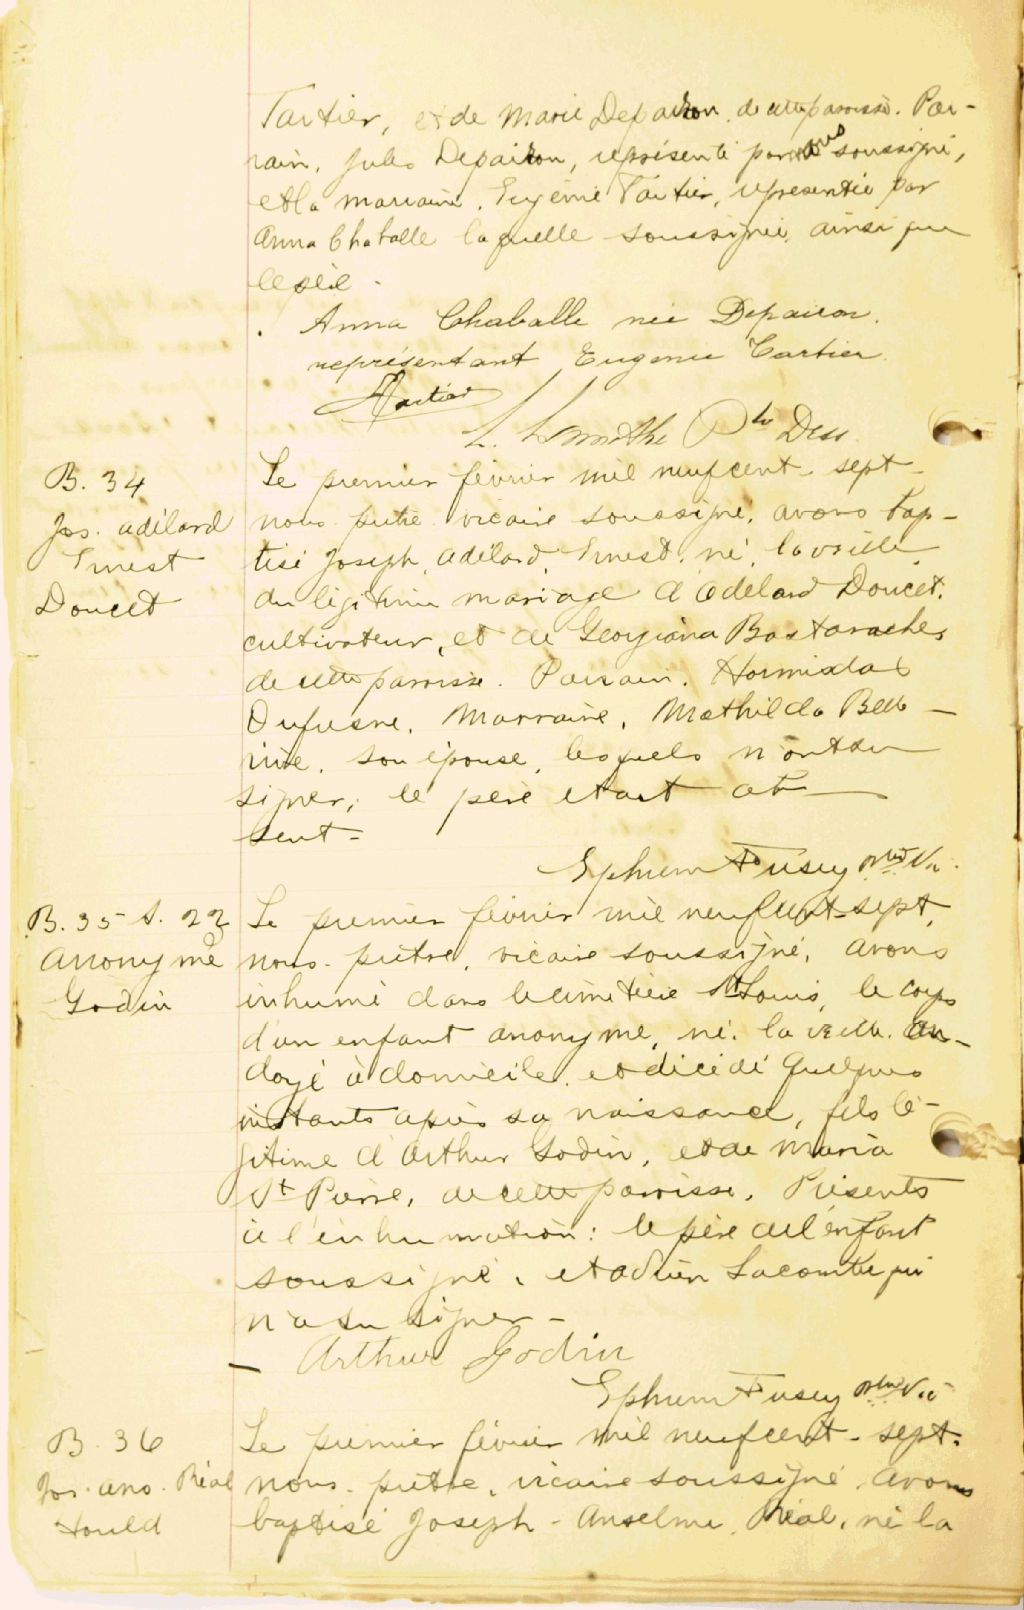 Tartier, et de Marie Depairon, de cette paroisse. Par-
rain, Jules Depairon, représenté par nous soussigné,
et la marraine, Eugénie Tartier, représentée par
Anna Chaballe laquelle soussignée, ainsi que
le père.
Anna Chaballe née Depairon.
représentant Eugénie Tartier.
Tartier
Ptre Dess.
B. 34
Jos. adélard
Ernest
Doucet
Le premier février mil neufcent-sept,
nous prêtre vicaire soussigné, avons bap-
tisé Joseph, adélard, Ernest, né, la veille
du légitime mariage d'Adélard Doucet,
cultivateur, et de Georgiana Bastarache,
de cette paroisse. Parrain, Hormisdas
Dufresne, Marraine, Mathilda Belle-
rive, son épouse, lesquels n'ont su
signer, le père étant ab-
sent-
Ephrem Fusey ptre Vic.
B. 35 S. 22
Anonyme
Godin
Le premier février mil neufcent-sept,
nous prêtre, vicaire soussigné, avons
inhumé dans le cimetière St Louis, le corps
d'un enfant anonyme, né, la veille, on-
doyé à domicile, et décédé quelques
instants après sa naissance, fils lé-
gitime d'Arthur Godin, et de Maria
St Pierre, de cette paroisse. Présents
à l'inhumation: le père de l'enfant
soussigné, et Adrien Lacombe qui
n'a su signer-
- Arthur Godin
Ephrem Fusey ptre Vic
B. 36
Jos. ans. Réal
Hould
Le premier février mil neufcent-sept,
nous prêtre, vicaire soussigné avons
baptisé Joseph-Anselme, Réal, né la